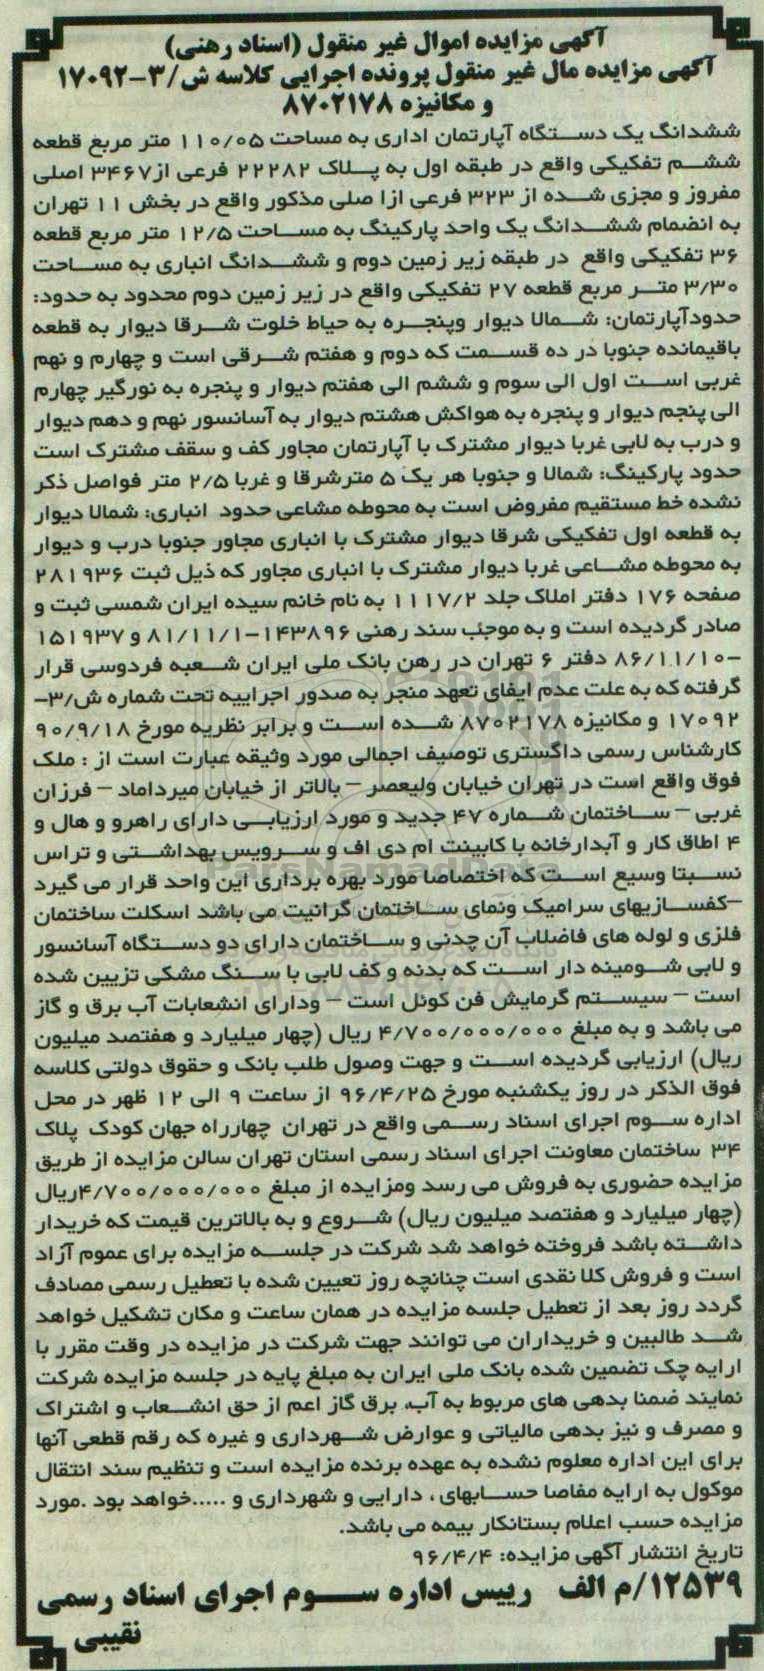 آگهی مزایده اموال غیر منقول (اسناد رهنی)
آگهی مزایده مال غیر منقول پرونده اجرایی کلاسه ش/۳-۱۷۰۹۲
و مکانیزه ۸۷۰۲۱۷۸
ششدانگ یک دستگاه آپارتمان اداری به مساحت ۱۱۰/۰۵ متر مربع قطعه
ششم تفکیکی واقع در طبقه اول به پلاک ۲۲۲۸۲ فرعی از۳۴۶۷ اصلی
مفروز و مجزی شده از ۳۲۳ فرعی ازا صلی مذکور واقع در بخش ۱۱ تهران
به انضمام ششدانگ یک واحد پارکینگ به مساحت ۱۲/۵ متر مربع قطعه
۳۶ تفکیکی واقع در طبقه زیر زمین دوم و ششدانگ انباری به مساحت
۳/۳۰ متر مربع قطعه ۲۷ تفکیکی واقع در زیر زمین دوم محدود به حدود:
حدودآپارتمان: شمالا دیوار وپنجره به حیاط خلوت شرقا دیوار به قطعه
باقیمانده جنوبا در ده قسمت که دوم و هفتم شرقی است و چهارم و نهم
غربی است اول الی سوم و ششم الی هفتم دیوار و پنجره به نورگیر چهارم
الی پنجم دیوار و پنجره به هواکش هشتم دیوار به آسانسور نهم و دهم دیوار
و درب به لابی غربا دیوار مشترک با آپارتمان مجاور کف و سقف مشترک است
حدود پارکینگ: شمالا و جنوبا هر یک ۵ مترشرقا و غربا ۲/۵ متر فواصل ذکر
نشده خط مستقیم مفروض است به محوطه مشاعی حدود انباری: شمالا دیوار
به قطعه اول تفکیکی شرقا دیوار مشترک با انباری مجاور جنوبا درب و دیوار
به محوطه مشاعی غربا دیوار مشترک با انباری مجاور که ذیل ثبت ۲۸۱۹۳۶
صفحه ۱۷۶ دفتر املاک جلد ۱۱۱۷/۲ به نام خانم سیده ایران شمسی ثبت و
صادر گردیده است و به موجب سند رهنی ۱۴۳۸۹۶-۸۱/۱۱/۱ و ۱۵۱۹۳۷
-۸۶/۱۱/۱۰ دفتر ۶ تهران در رهن بانک ملی ایران شعبه فردوسی قرار
گرفته که به علت عدم ایفای تعهد منجر به صدور اجراییه تحت شماره ش/۳-
۱۷۰۹۲ و مکانیزه ۸۷۰۲۱۷۸ شده است و برابر نظریه مورخ ۹۰/۹/۱۸
کارشناس رسمی داگستری توصیف اجمالی مورد وثیقه عبارت است از : ملک
فوق واقع است در تهران خیابان ولیعصر – بالاتر از خیابان میرداماد – فرزان
غربی – ساختمان شماره ۴۷ جدید و مورد ارزیابی دارای راهرو و هال و
۴ اطاق کار و آبدارخانه با کابینت ام دی اف و سرویس بهداشتی و تراس
نسبتا وسیع است که اختصاصا مورد بهره برداری این واحد قرار می گیرد
–کفسازیهای سرامیک ونمای ساختمان گرانیت می باشد اسکلت ساختمان
فلزی و لوله های فاضلاب آن چدنی و ساختمان دارای دو دستگاه آسانسور
و لابی شومینه دار است که بدنه و کف لابی با سنگ مشکی تزیین شده
است – سیستم گرمایش فن کوئل است – ودارای انشعابات آب برق و گاز
می باشد و به مبلغ ۴/۷۰۰/۰۰۰/۰۰۰ ریال (چهار میلیارد و هفتصد میلیون
ریال) ارزیابی گردیده است و جهت وصول طلب بانک و حقوق دولتی کلاسه
فوق الذکر در روز یکشنبه مورخ ۹۶/۴/۲۵ از ساعت ۹ الی ۱۲ ظهر در محل
اداره سوم اجرای اسناد رسمی واقع در تهران چهارراه جهان کودک پلاک
۳۴ ساختمان معاونت اجرای اسناد رسمی استان تهران سالن مزایده از طریق
مزایده حضوری به فروش می رسد ومزایده از مبلغ ۴/۷۰۰/۰۰۰/۰۰۰ریال
(چهار میلیارد و هفتصد میلیون ریال) شروع و به بالاترین قیمت که خریدار
داشته باشد فروخته خواهد شد شرکت در جلسه مزایده برای عموم آزاد
است و فروش کلا نقدی است چنانچه روز تعیین شده با تعطیل رسمی مصادف
گردد روز بعد از تعطیل جلسه مزایده در همان ساعت و مکان تشکیل خواهد
شد طالبین و خریداران می توانند جهت شرکت در مزایده در وقت مقرر با
ارایه چک تضمین شده بانک ملی ایران به مبلغ پایه در جلسه مزایده شرکت
نمایند ضمنا بدهی های مربوط به آب، برق گاز اعم از حق انشعاب و اشتراک
و مصرف و نیز بدهی مالیاتی و عوارض شهرداری و غیره که رقم قطعی آنها
برای این اداره معلوم نشده به عهده برنده مزایده است و تنظیم سند انتقال
موکول به ارایه مفاصا حسابهای ، دارایی و شهرداری و .....خواهد بود .مورد
مزایده حسب اعلام بستانکار بیمه می باشد.
تاریخ انتشار آگهی مزایده: ۹۶/۴/۴
۱۲۵۳۹/م الف رییس اداره سوم اجرای اسناد رسمی
نقیبی